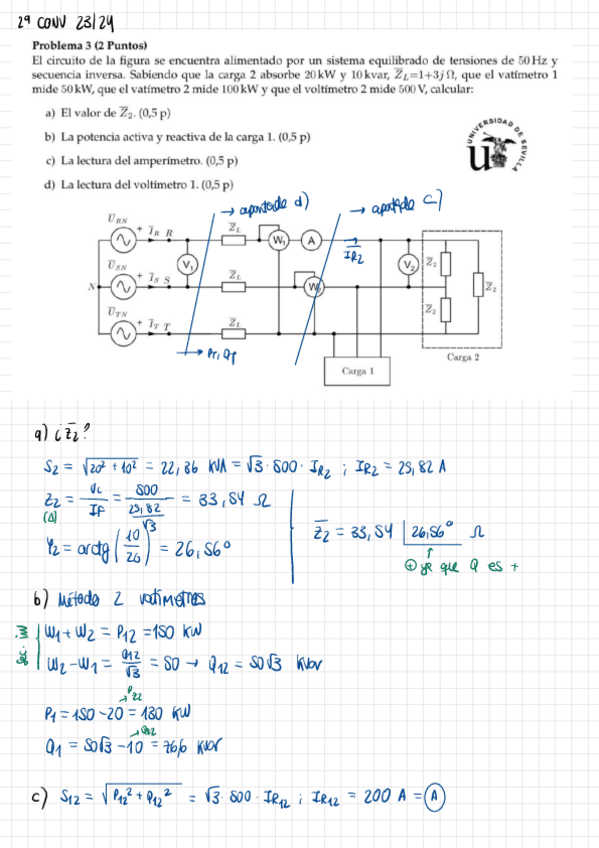 2ª CONV 23/24
Problema 3 (2 Puntos)
El circuito de la figura se encuentra alimentado por un sistema equilibrado de tensiones de 50 Hz y
secuencia inversa. Sabiendo que la carga 2 absorbe 20 kW y 10 kvar, Z̅L=1+3j Ω, que el vatímetro 1
mide 50 kW, que el vatímetro 2 mide 100 kW y que el voltímetro 2 mide 500 V, calcular:
a) El valor de Z̅2. (0,5 p)
b) La potencia activa y reactiva de la carga 1. (0,5 p)
c) La lectura del amperímetro. (0,5 p)
d) La lectura del voltímetro 1. (0,5 p)
UNIVERSIDAD DE SEVILLA
→ apartado d)
→ apartado c)
U̅RN + I̅R R Z̅L W1 A IR2
U̅SN + I̅S S V1 Z̅L W V2 Z̅2 Z̅2
N
U̅TN + I̅T T Z̅L Z̅2
→ PT, QT
Carga 1
Carga 2
a) ¿Z̅2?
S2 = √20² + 10² = 22,36 KVA = √3 · 500 · IR2 ; IR2 = 25,82 A
Z2 = UL/IF = 500/(25,82/√3) = 33,54 Ω
(Δ)
φ2 = arctg (10/20) = 26,56°
Z̅2 = 33,54 |26,56° Ω
⊕ ya que Q es +
b) Método 2 vatímetros
sec. inv
W1 + W2 = P12 = 150 KW
W2 - W1 = Q12/√3 = 50 → Q12 = 50√3 kvar
P1 = 150 - 20 = 130 KW
Q1 = 50√3 - 10 = 76,6 kvar
c) S12 = √P12² + Q12² = √3 · 500 · IR12 ; IR12 = 200 A = A